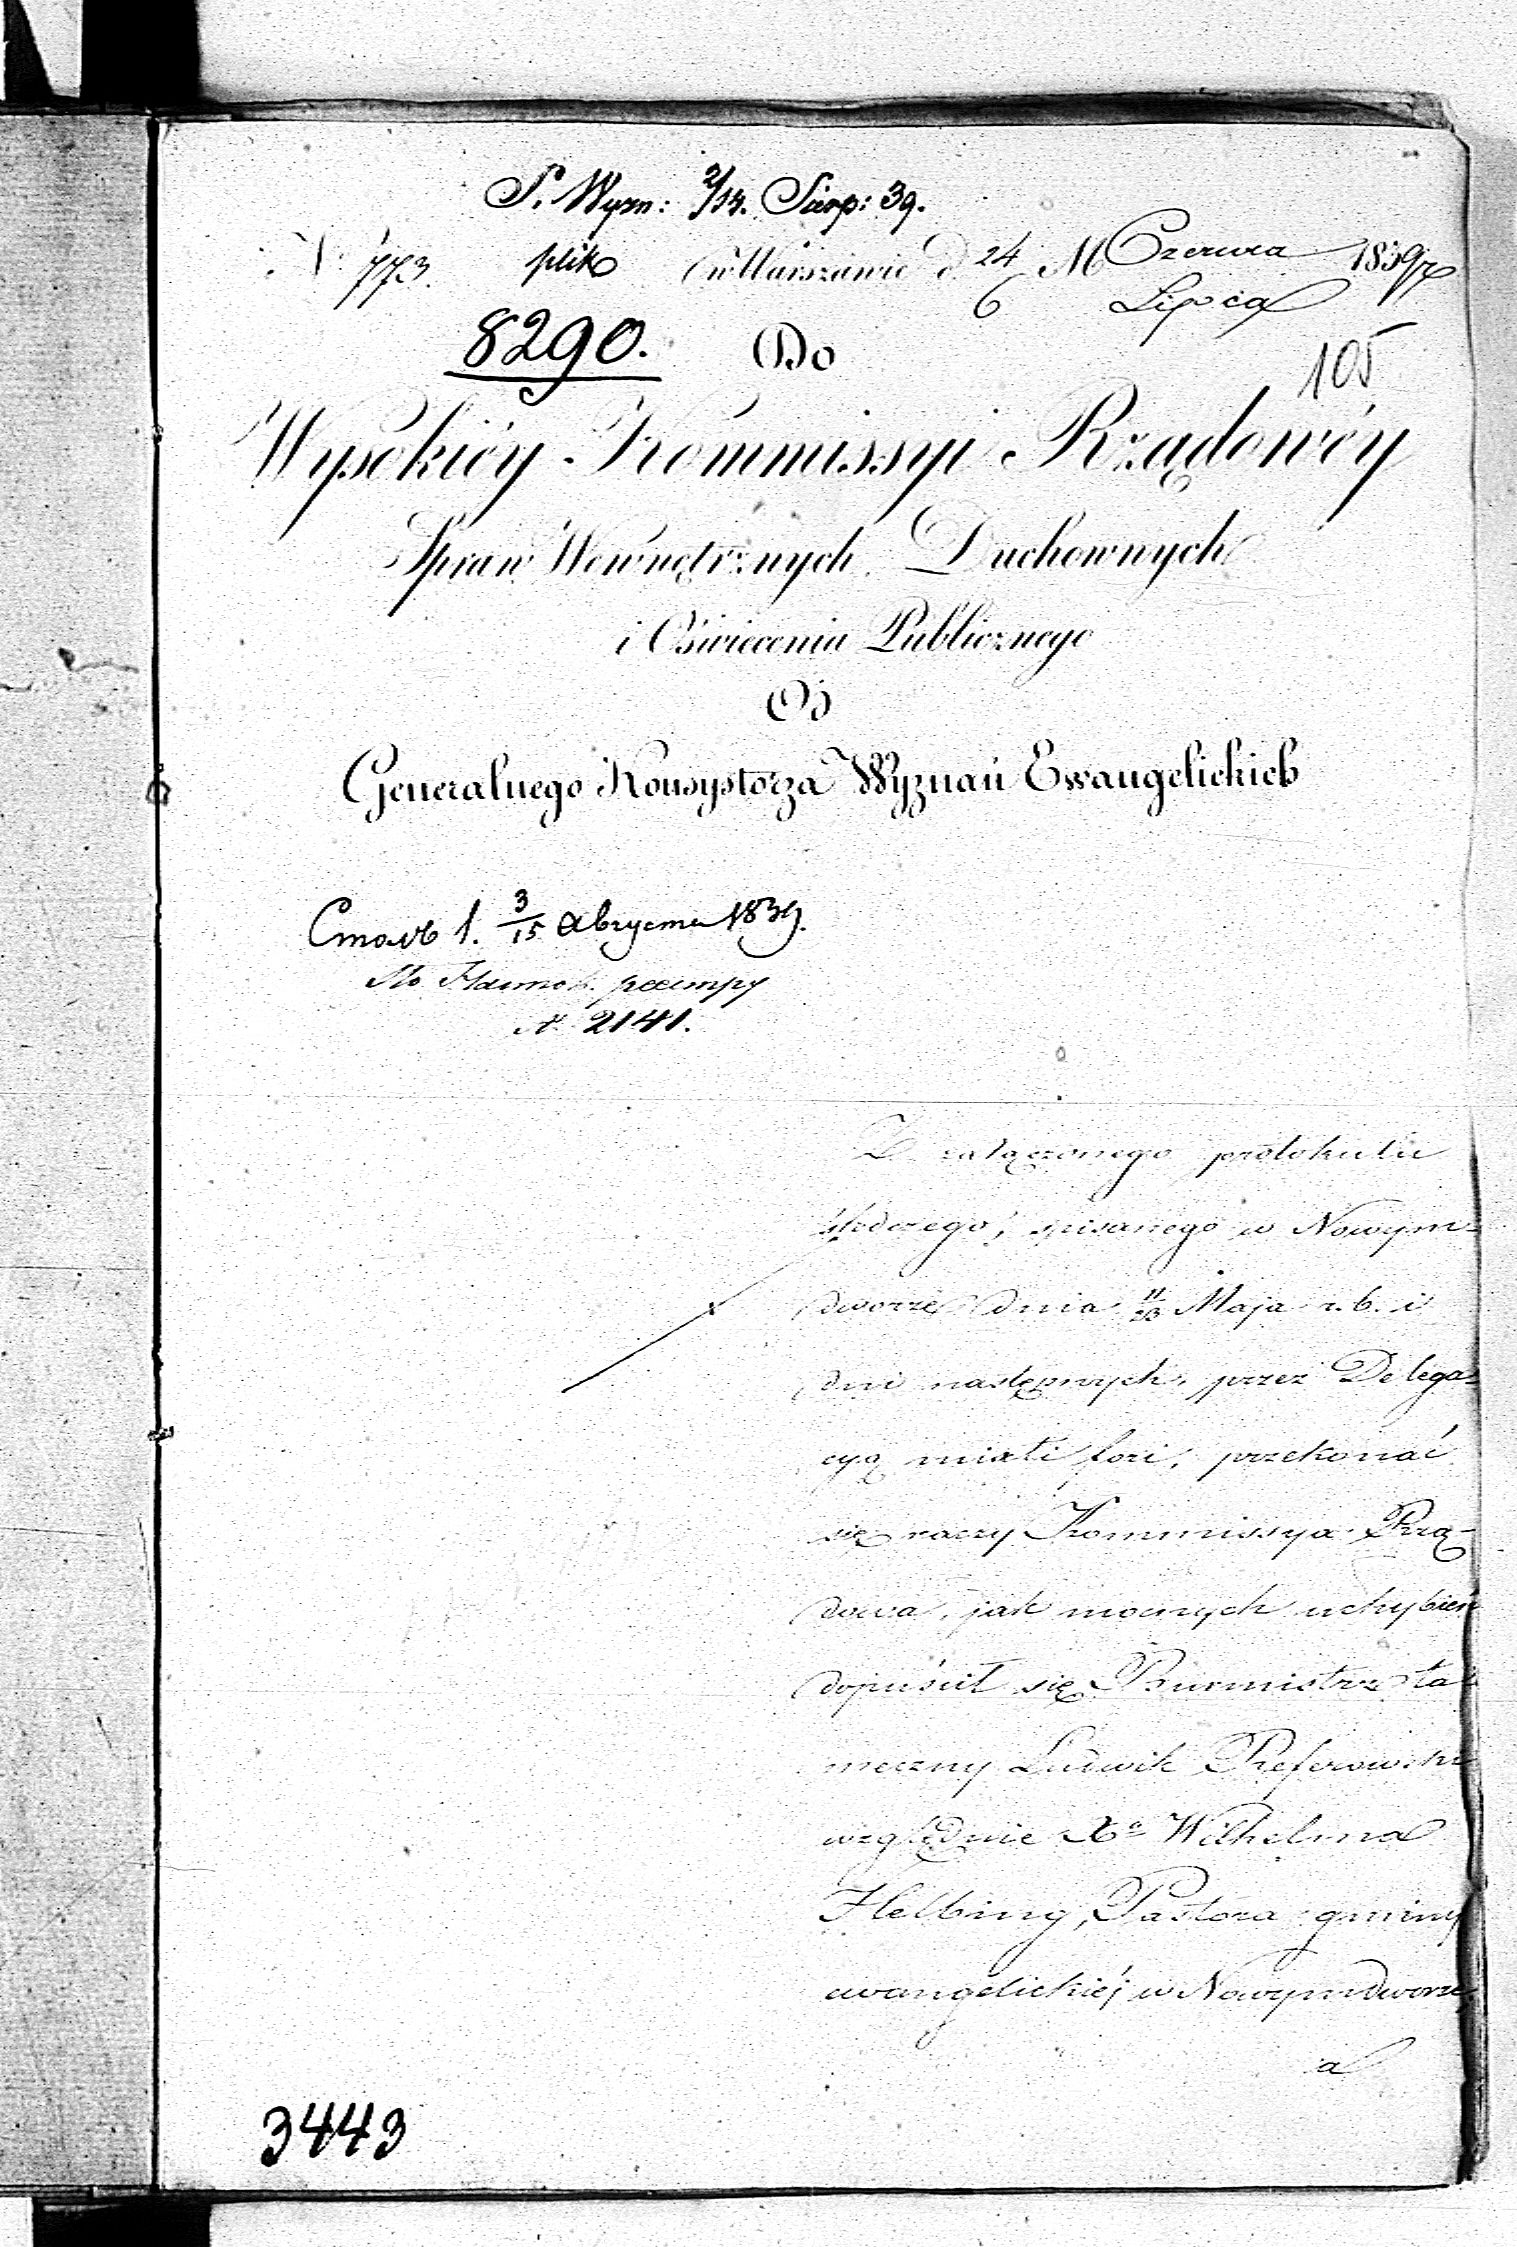 S. Wyzn: 2/14. Sierp: 39.
N 773. plik w Warszawie d. 24/6 M Czerwca/Lipca 1839 r.
8290. Do
105
Wysokiéy Kommissyi Rządowéy
Spraw Wewnętrznych Duchownych
i Oświecenia Publicznego
Od
Generalnego Konsystorza Wyznań Ewangelickich
Столъ 1. 3/15 Августа 1839.
реестру
N 2141.
Z załączonego protokułu
śledczego, spisanego w Nowym=
dworze dnia 11/23 Maja r. b. i
dni następnych, przez Delega=
cyą mixti fori, przekonać
się raczy Kommissya Rzą-
dowa, jak mocnych uchybień
dopuścił się Burmistrz ta=
meczny Ludwik
względnie Xa Wilhelma
Helbing, Pastora gminy
ewangelickiéj w Nowymdworze,
a
3443